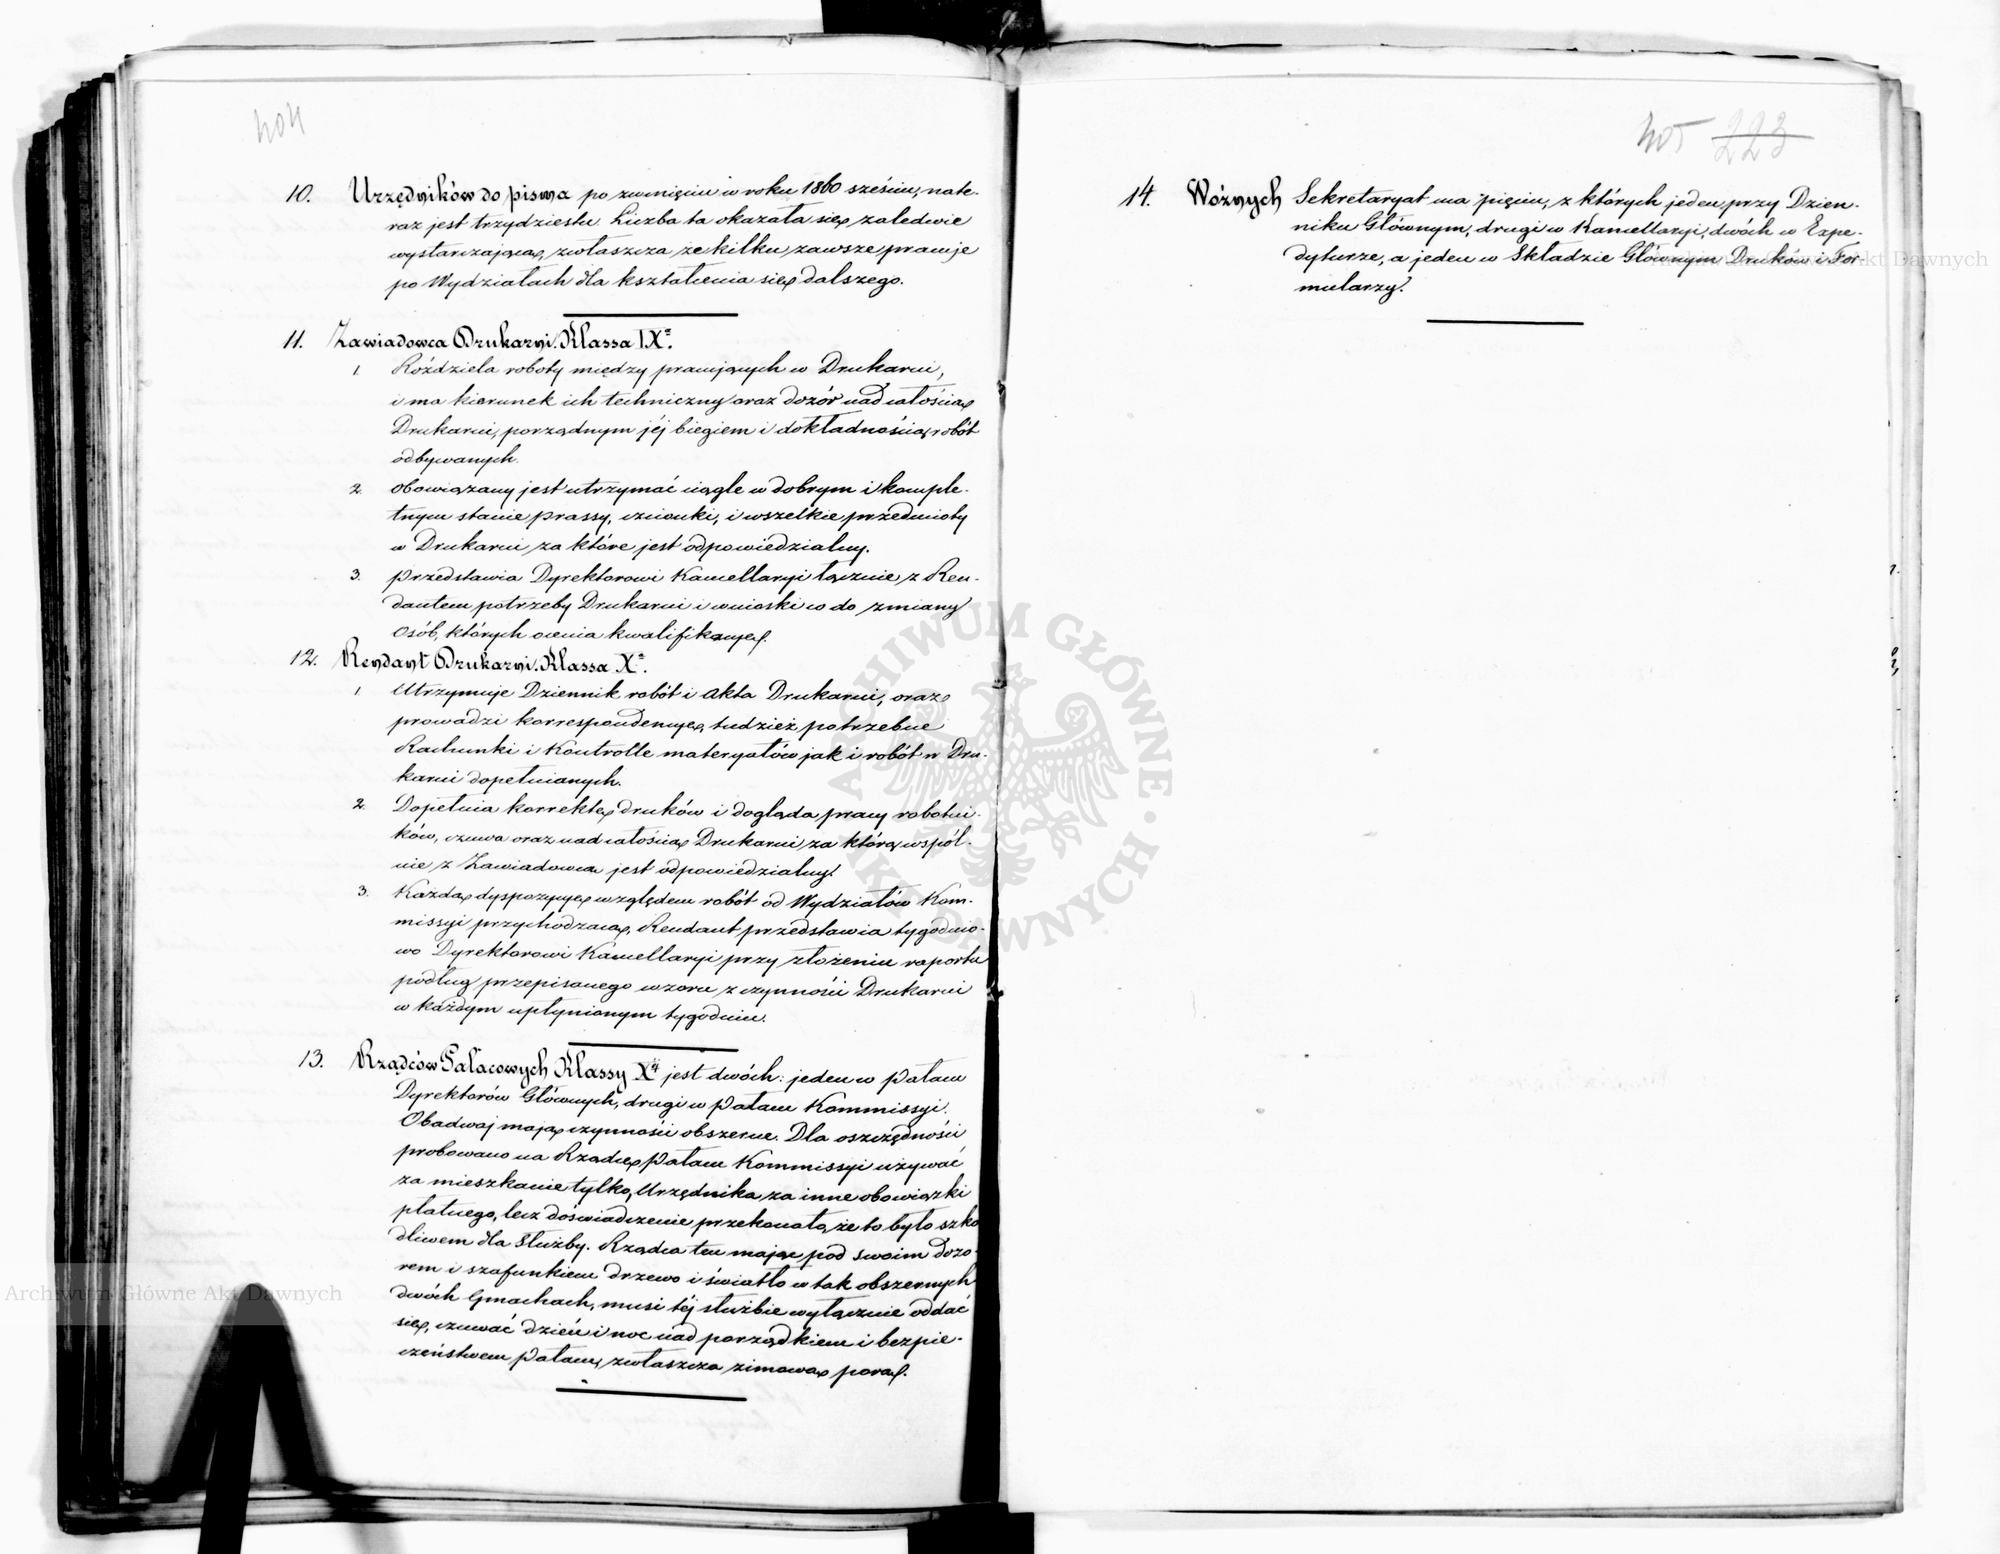 404
10. Urzędników do pisma po zwinięciu w roku 1860 sześciu, nate-
raz jest trzydziestu. Liczba ta okazała się zaledwie
wystarczającą, zwłaszcza że kilku zawsze pracuje
po Wydziałach dla kształcenia się dalszego.
11. Zawiadowca Drukarni. Klassa IXa.
1. Rozdziela roboty między pracujących w Drukarni,
i ma kierunek ich techniczny oraz dozór nad całością
Drukarni, porządnym jéj biegiem i dokładnością robót
odbywanych.
2. obowiązany jest utrzymać ciągle w dobrym i komple-
tnym stanie prassy, czcionki, i wszelkie przedmioty
w Drukarni za które jest odpowiedzialny.
3. przedstawia Dyrektorowi Kancellaryi łącznie z Ren-
dantem potrzeby Drukarni i wnioski co do zmiany
osób, których ocenia kwalifikacye.
12. Rendant Drukarni. Klassa Xa.
1. Utrzymuje Dziennik robót i Akta Drukarni, oraz
prowadzi korrespondencye, tudzież potrzebne
Rachunki i Kontrolle materyałów jak i robót w Dru-
karni dopełnianych.
2. Dopełnia korrektę druków i dogląda pracy robotni-
ków, czuwa oraz nad całością Drukarni, za którą wspól-
nie z Zawiadowcą jest odpowiedzialny.
3. Każdą dyspozycyę względem robót od Wydziałów Kom-
missyi przychodzącą, Rendant przedstawia tygodnio-
wo Dyrektorowi Kancellaryi przy złożeniu raportu
podług przepisanego wzoru z czynności Drukarni
w każdym upłynionym tygodniu.
13. Rządców Pałacowych Klassy Xéj jest dwóch: jeden w Pałacu
Dyrektorów Głównych, drugi w Pałacu Kommissyi.
Obadwaj mają czynności obszerne. Dla oszczędności
probowano na Rządcę Pałacu Kommissyi używać
za mieszkanie tylko, Urzędnika za inne obowiązki
płatnego, lecz doświadczenie przekonało, że to było szko
dliwem dla Służby. Rządca ten mając pod swoim dozo-
rem i szafunkiem drzewo i światło w tak obszernych
dwóch Gmachach, musi téj służbie wyłącznie oddać
się, czuwać dzień i noc nad porządkiem i bezpie-
czeństwem Pałacu, zwłaszcza zimową porą.
405 223
14. Woźnych Sekretaryat ma pięciu, z których jeden przy Dzien-
niku Głównym, drugi w Kancellaryi, dwóch w Expe-
dyturze, a jeden w Składzie Głównym Druków i For-
mularzy.
ARCHIWUM GŁÓWNE AKT DAWNYCH
Archiwum Główne Akt Dawnych
Akt Dawnych